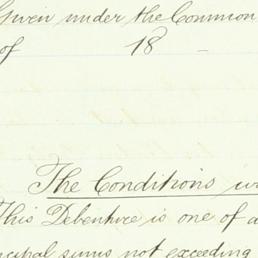 Given under the Common
of 18 -
The Conditions
This Debenture is one of a
sums not exceeding